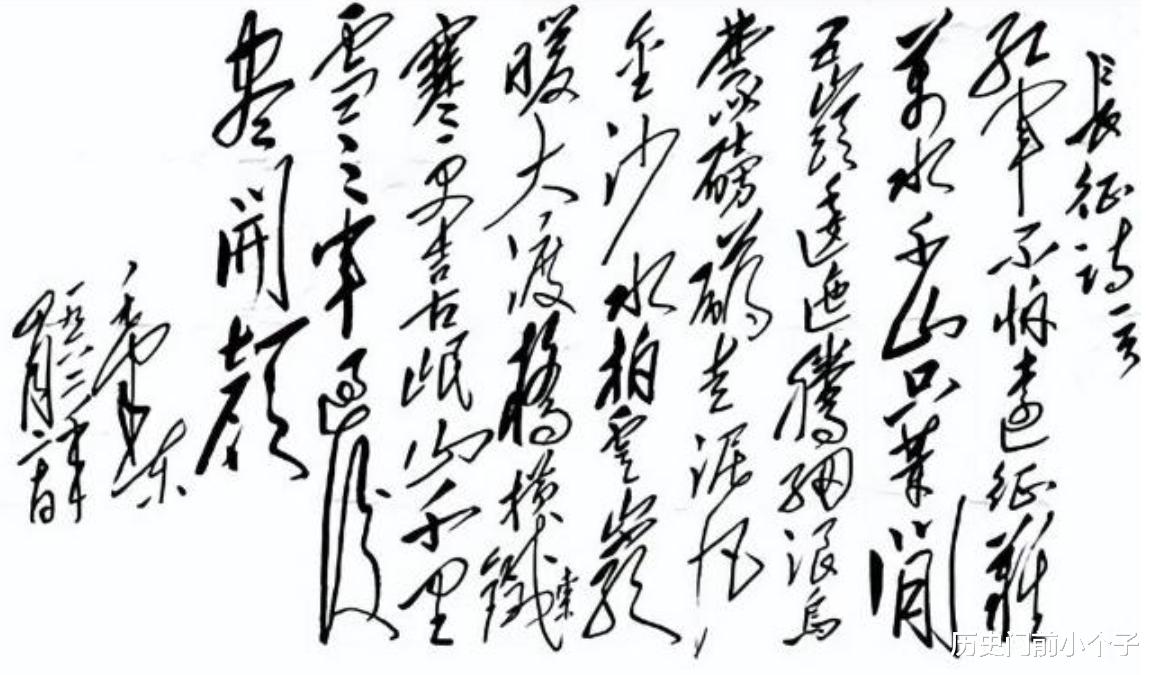 長征诗一首
红軍不怕遠征難
萬水千山只等閒
五嶺逶迤腾细浪烏
蒙磅礴走泥丸
金沙水拍雲崖
暖大渡橋横鐵索
寒更喜岷山千里
雪三軍過後
盡開顏
毛澤东
一九六二年
四月二十日
历史门前小个子